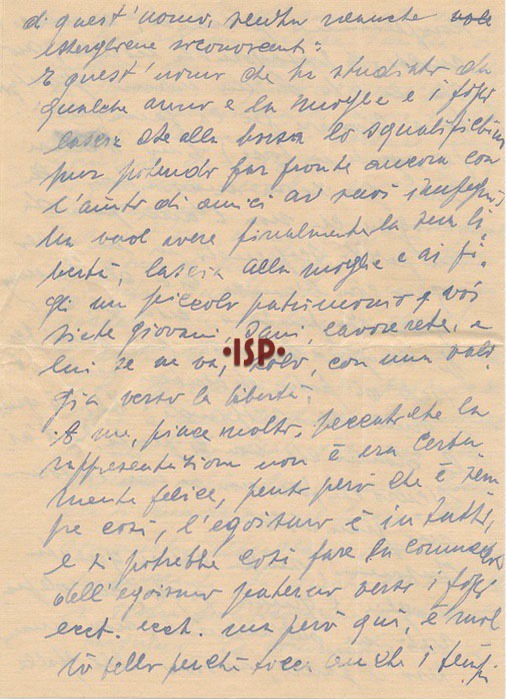 di quest'uomo, senza neanche
essergliene riconoscenti:
E quest'uomo che ha studiato da
qualche anno e la moglie e i figli
lascia che alla borsa lo squalifichino
pur potendo far fronte ancora con
l'aiuto di amici ai suoi impegni,
ma vuol avere finalmente la sua li
bertà, lascia alla moglie e ai fi-
gli un piccolo patrimonio, voi
siete giovani, sani, lavorerete, e
lui se ne va, solo, con una vali
•ISP•
gia verso la libertà.
A me, piace molto, peccato che la
rappresentazione non è era certa
mente felice, penso però che è sem
pre così, l'egoismo è in tutti,
e si potrebbe così fare la commedia
dell'egoismo paterno verso i figli
ecct. ecct. ma però qui, è mol
to bello perchè tocca anche i tempi